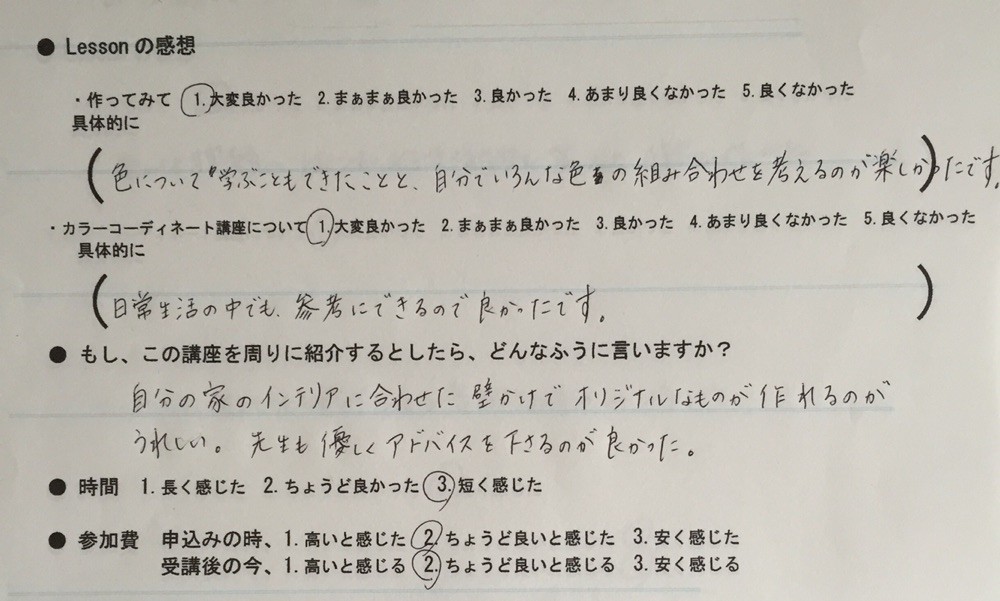 ● Lessonの感想
・作ってみて 1.大変良かった 2.まぁまぁ良かった 3.良かった 4.あまり良くなかった 5.良くなかった
具体的に
(色について学ぶこともできたことと、自分でいろんな色の組み合わせを考えるのが楽しかったです。)
・カラーコーディネート講座について 1.大変良かった 2.まぁまぁ良かった 3.良かった 4.あまり良くなかった 5.良くなかった
具体的に
(日常生活の中でも、参考にできるので良かったです。)
● もし、この講座を周りに紹介するとしたら、どんなふうに言いますか？
自分の家のインテリアに合わせた壁かけでオリジナルなものが作れるのが
うれしい。先生も優しくアドバイスを下さるのが良かった。
● 時間 1.長く感じた 2.ちょうど良かった 3.短く感じた
● 参加費 申込みの時、1.高いと感じた 2.ちょうど良いと感じた 3.安く感じた
受講後の今、1.高いと感じる 2.ちょうど良いと感じる 3.安く感じる